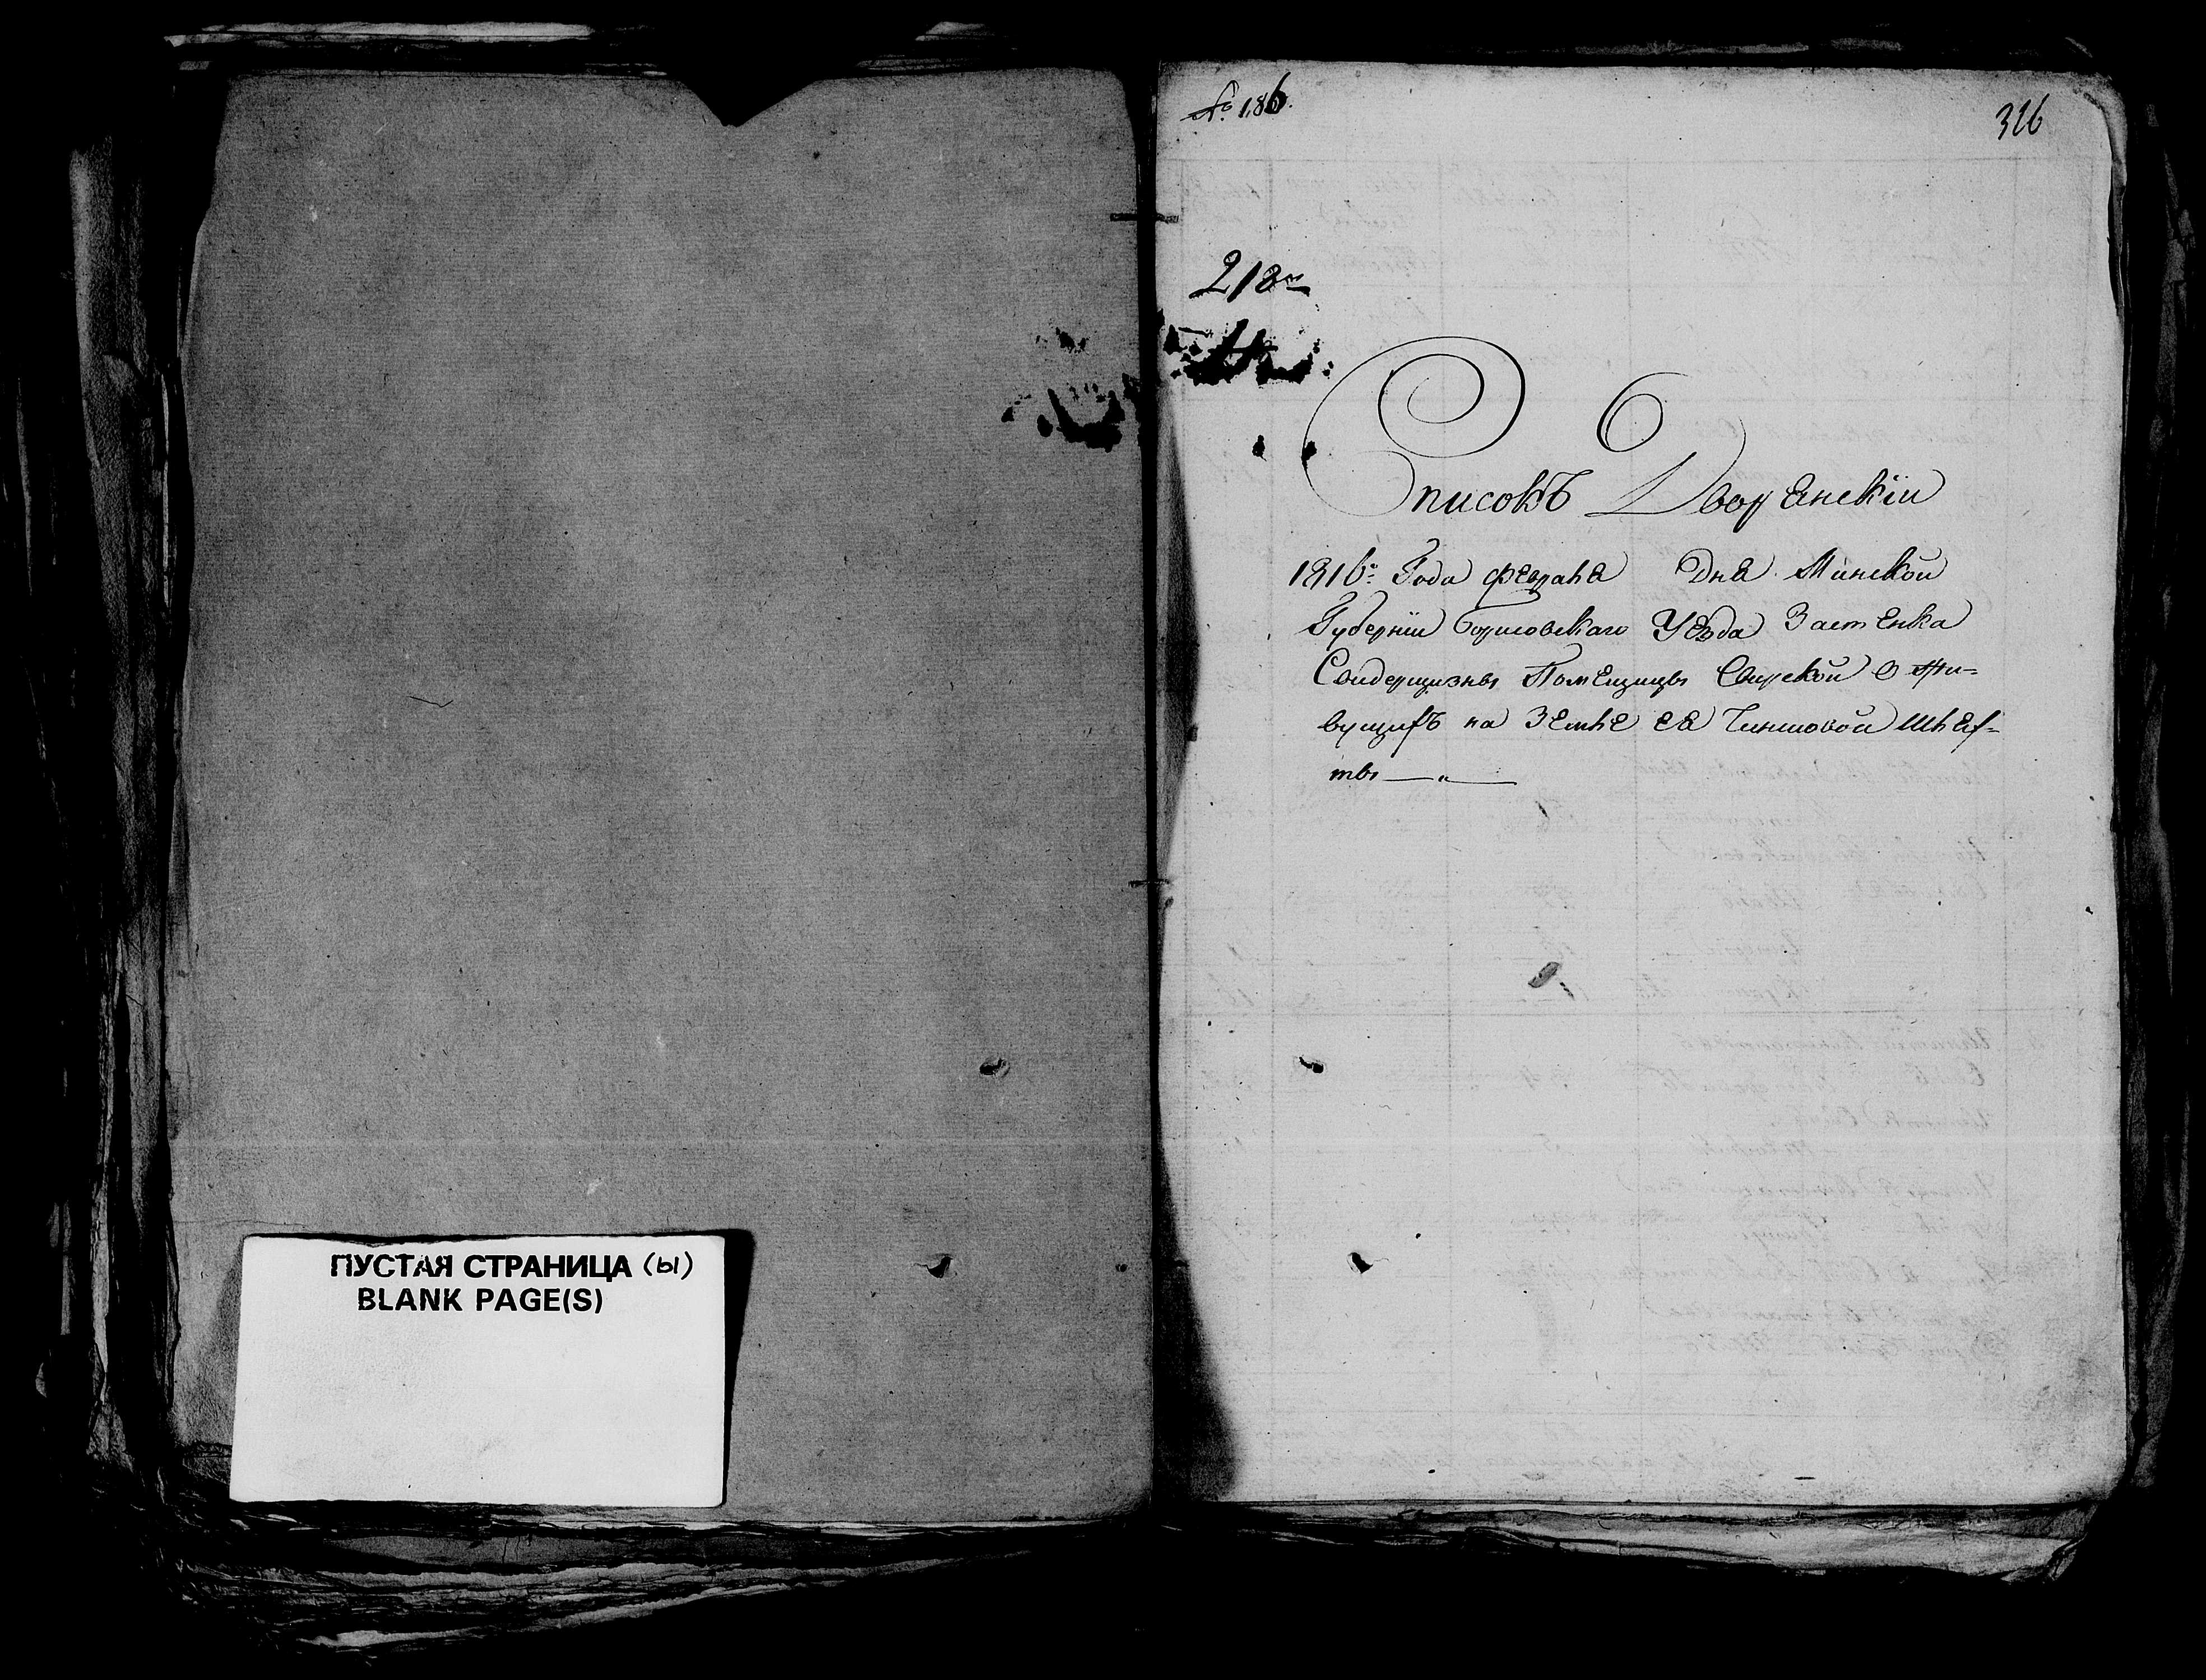 ПУСТАЯ СТРАНИЦА (ы)
BLANK PAGE(S)
№ 186.
316
218
Списокъ Дворянскій
1816го Года февраля Дня Минской
Губерніи Борисовскаго Уезда Застенка
Помещицы Свирской о жи-
вущихъ на Земле ея Чиншовой Шлях-
ты